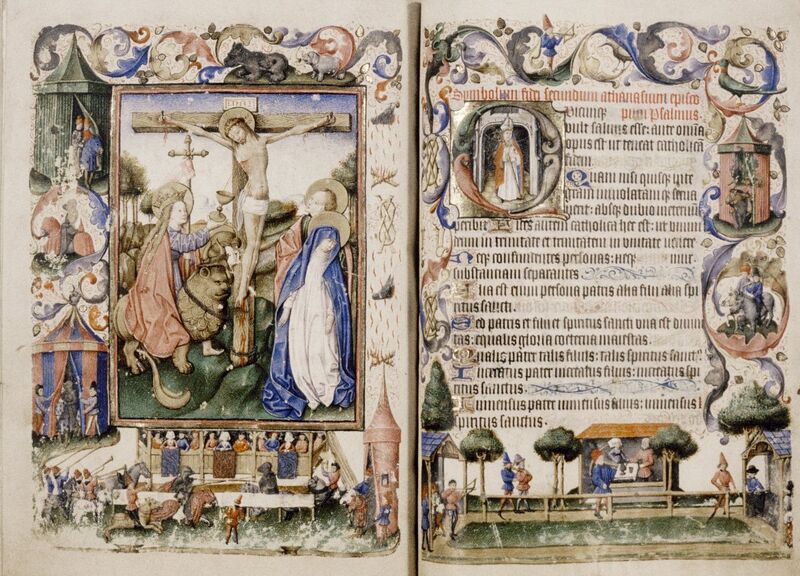 INRI
Symbolum fidei secundum athanasium episco
Quicunq; pum Psalmus.
vult salvus esse: ante omnia
opus est ut teneat catholicā
fidem.
Quam nisi quisque inte
gram inviolatamque serva
verit: absque dubio in eternū
peribit Fides autem catholica hec est: ut unum
deum in trinitate et trinitatem in unitate veneremur
Neque confundentes personas: neque
substantiam separantes
Alia est enim persona patris alia filii alia spi
ritus sancti.
Sed patris et filii et spiritus sancti una est divini
tas: equalis gloria coeterna maiestas.
Qualis pater talis filius: talis spiritus sanctus
Increatus pater increatus filius: increatus spi
ritus sanctus
Immensus pater immensus filius: immensus
spiritus sanctus.